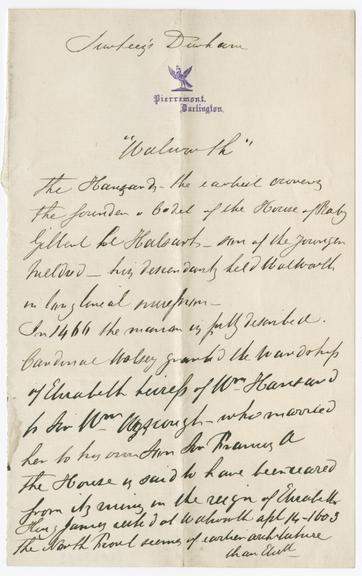 Surtees's Durham
Pierremont,
Darlington.
"Walworth"
The Hansards - the earliest owners
the founder a Cadet of the House of Raby
Gilbert de Halsart - son of the younger
Meldred - his descendants held Walworth
in long lineal succession -
In 1466 the manor is fully described.
Cardinal Wolsey granted the Wardship
of Elizabeth heiress of Wm Hansard
to Sir Wm Ayscough - who married
her to his own Son Sir Francis A
The House is said to have been reared
from its ruins in the reign of Elizabeth
King James rested at Walworth apl 14 - 1603
The North Front seems of earlier architecture
than Eliz